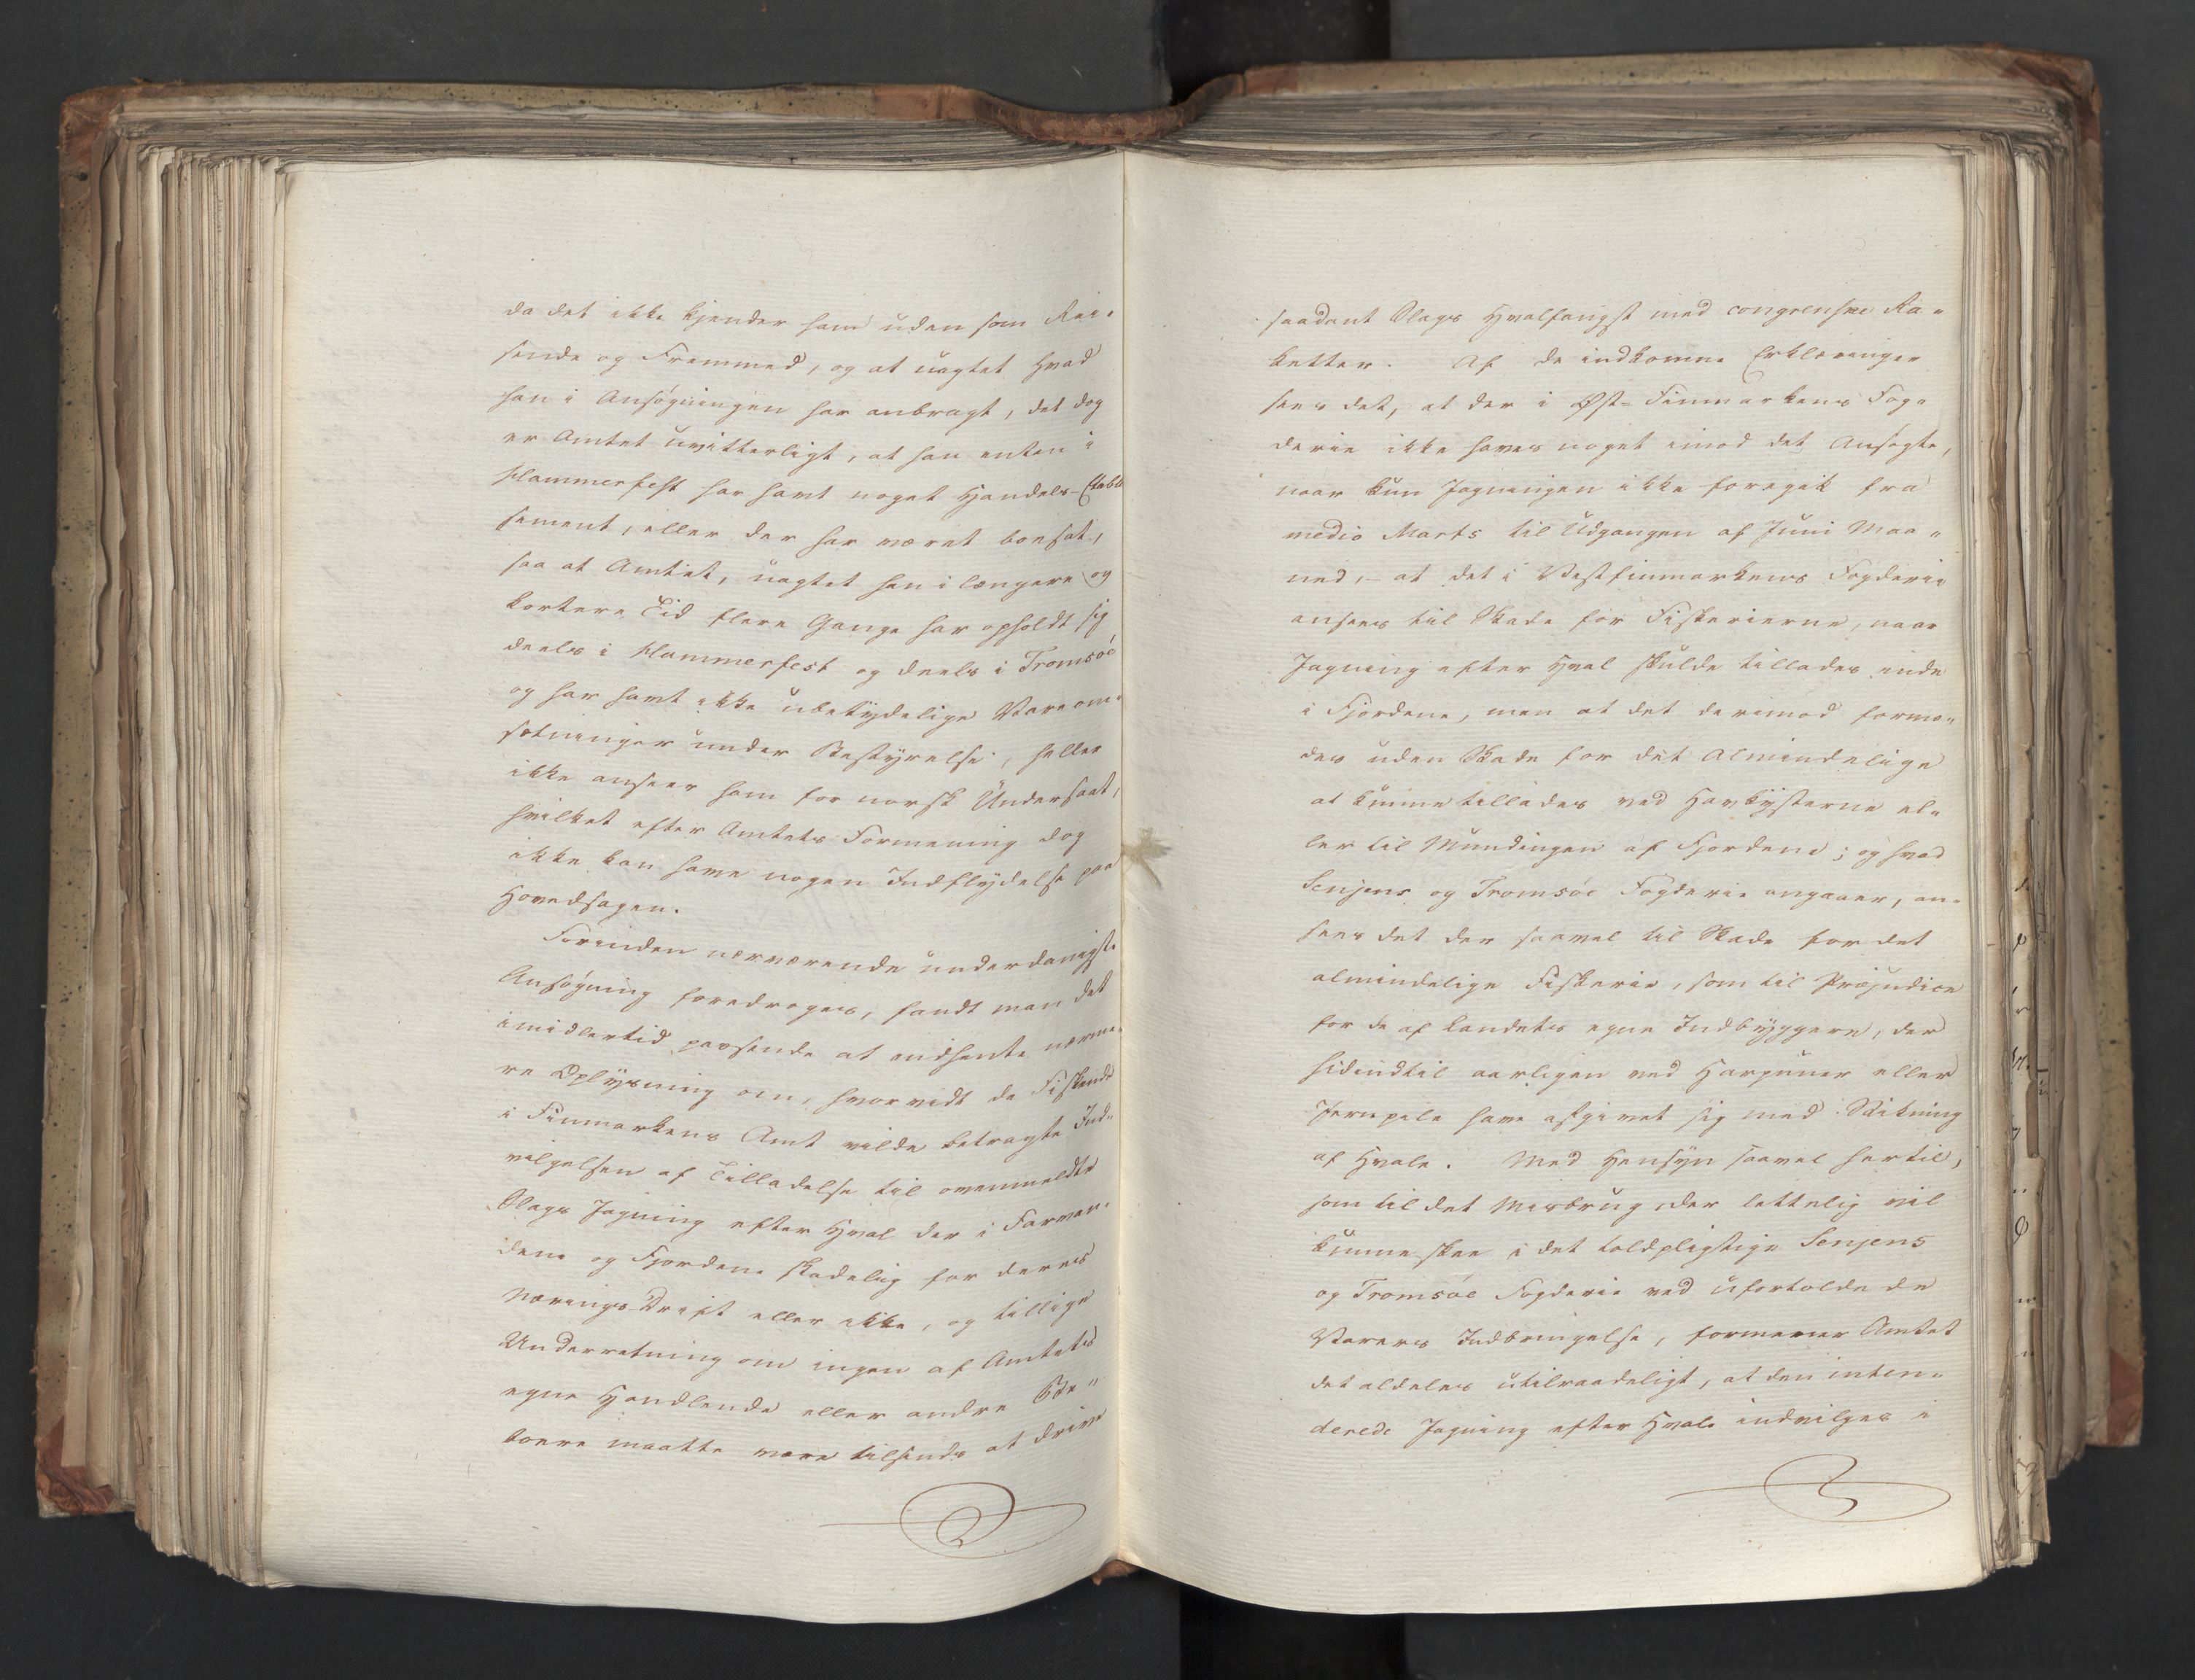 da det ikke kjender ham uden som Rei-
sende og Fremmed, og at uagtet hvad
han i Ansøgningen har anbragt, det dog
er Amtet uvitterligt, at han enten i
Hammerfest har havt noget Handels-Etabli
sement, eller der har været boesat,
saa at Amtet, uagtet han i længere og
kortere Tid flere Gange har opholdt sig
deels i Hammerfest og deels i Tromsöe
og har havt ikke ubetydelige Vareom-
sætninger under Bestyrelse, heller
ikke anseer ham for norsk Undersaat,
hvilket efter Amtets Formening dog
ikke kan have nogen Indflydelse paa
Hovedsagen.
Forinden nærværende underdanigste
Ansøgning foredroges, fandt man det
imidlertid passende at indhente nærme-
re Oplysning om, hvorvidt de Fiskende
i Finmarkens Amt vilde betragte Ind-
vilgelsen af Tilladelse til ovenmeldte
Slags Jagning efter Hval der i Farvan-
dene og Fjordene skadelig for deres
Nærings-Drift eller ikke, og tillige
Underretning om ingen af Amtets
egne Handlende eller andre Be-
boere maatte være tilsinds at drive
saadant Slags Hvalfangst med congrevske Ra-
ketter. Af de indkomne Erklæringer
sees det, at der i Øst-Finmarkens Fog-
derie ikke haves noget imod det Ansøgte,
naar kun Jagningen ikke foregik fra
medio Marts til Udgangen af Juni Maa-
ned, - at det i Vestfinmarkens Fogderie
ansees til Skade for Fiskerierne, naar
Jagning efter Hval skulde tillades inde
i Fjordene, men at det derimod formo-
des uden Skade for det Almindelige
at kunne tillades ved Havkysterne el-
ler til Mundingen af Fjordene; og hvad
Senjens og Tromsöe Fogderie angaaer, an-
sees det der saavel til Skade for det
almindelige Fiskerie, som til Præjudice
for de af Landets egne Indbyggere, der
hidindtil aarligen ved Harpuner eller
Jernpile have afgivet sig med Stikning
af Hvale. Med Hensyn saavel hertil,
som til det Misbrug, der lettelig vil
kunne skee i det toldpligtige Senjens
og Tromsöe Fogderie ved ufortoldede
Varers Indbringelse, formener Amtet
det aldeles utilraadeligt, at den inten-
derede Jagning efter Hvale indvilges i